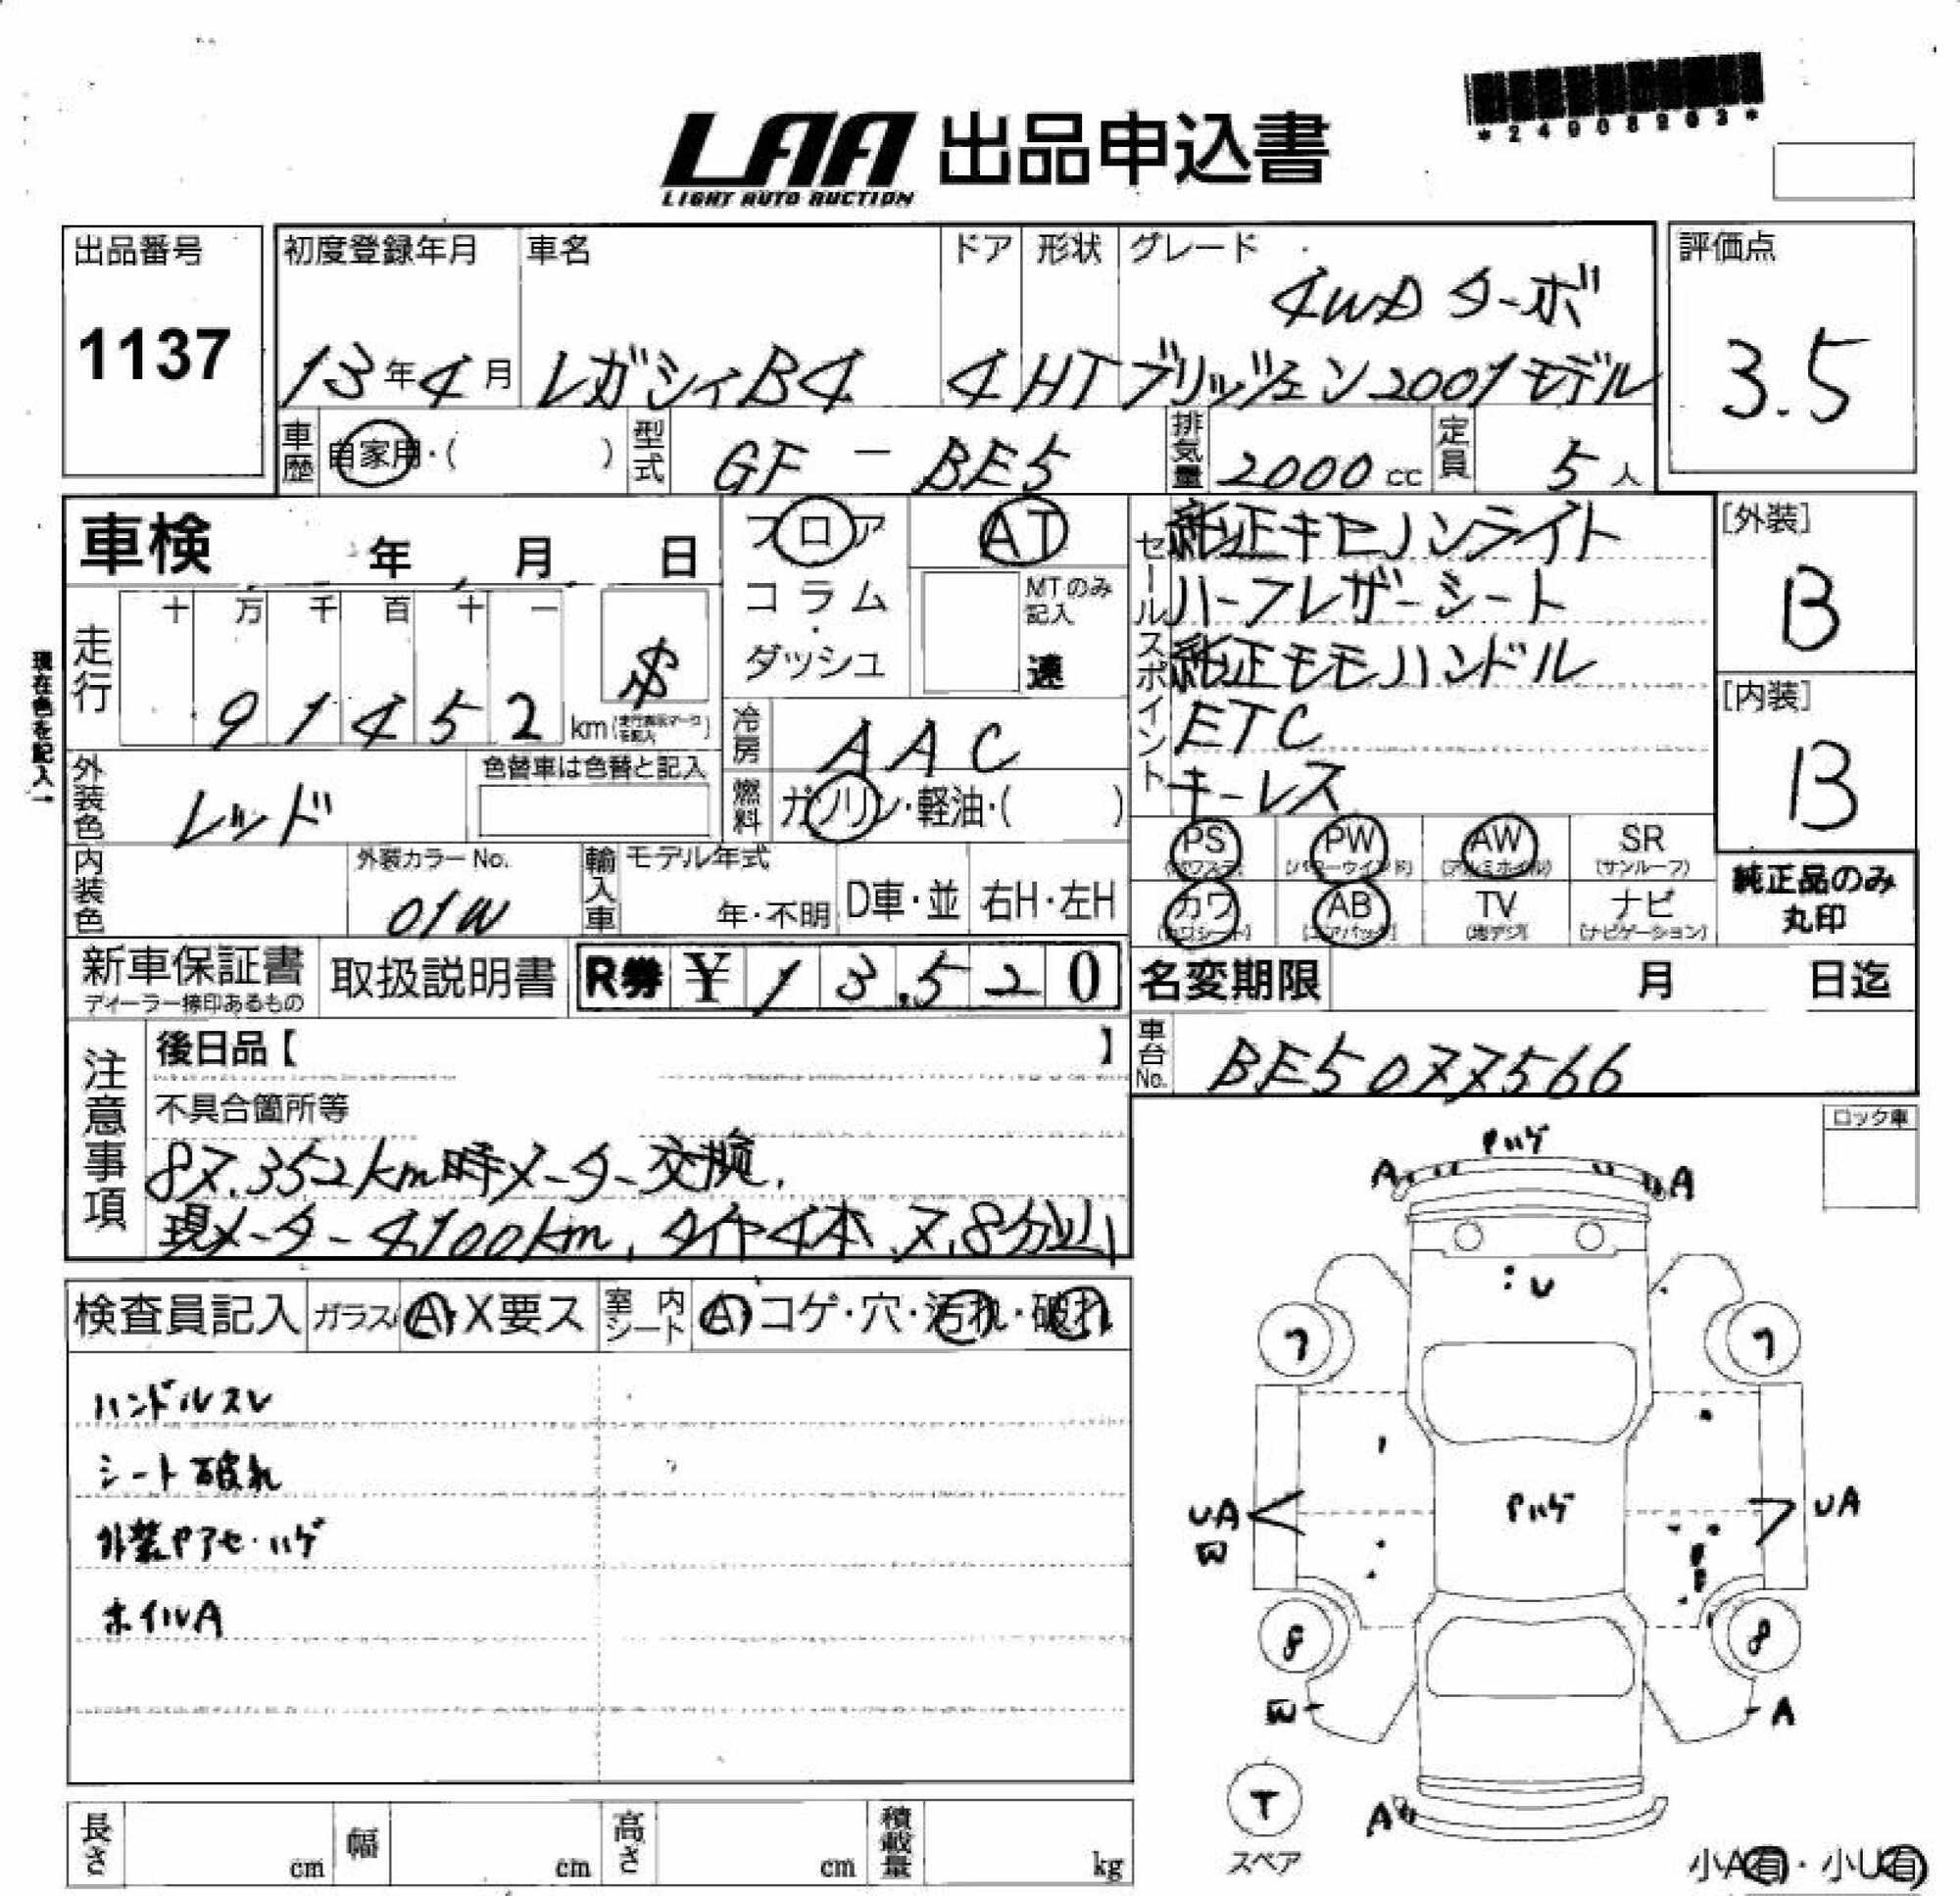 *24908903*
LAA 出品申込書
LIGHT AUTO AUCTION
出品番号
1137
初度登録年月
13年4月
車名
レガシィB4
ドア
4
形状
HT
グレード
4WDターボ
ブリッツェン2001モデル
評価点
3.5
車歴 自家用・( )
型式 GF-BE5
排気量 2000cc
定員 5人
車検 年 月 日
フロア
コラム
・
ダッシュ
AT
MTのみ記入
速
走行
十 万 千 百 十 一
9 1 4 5 2 km
$
現在色を記入→
冷房 AAC
外装色 レッド
色替車は色替と記入
燃料 ガソリン・軽油・( )
内装色
外装カラーNo.
01W
輸入車
モデル年式
年・不明
D車・並
右H・左H
セールスポイント
純正キセノンライト
ハーフレザーシート
純正モモハンドル
ETC
キーレス
[外装]
B
[内装]
B
PS (パワステ)
PW (パワーウインド)
AW (アルミホイル)
SR (サンルーフ)
カワ (カワシート)
AB (エアバッグ)
TV (地デジ)
ナビ (ナビゲーション)
純正品のみ丸印
新車保証書
ディーラー捺印あるもの
取扱説明書
R券 ¥13.520
名変期限 月 日迄
車台No. BE5077566
注意事項
後日品【 】
不具合箇所等
87.352km時メーター交換.
現メーター4100km, タイヤ4本.7.8分山
ロック車
検査員記入
ガラス A・X要ス
室内シート A・コゲ・穴・汚れ・破れ
ハンドルスレ
シート破れ
外装ヤアセ・ハゲ
ホイルA
Pハゲ
A A
U
7 7
Pハゲ
UA UA
W
8 8
W A
T
スペア
A
小A有・小U有
長さ cm
幅 cm
高さ cm
積載量 kg